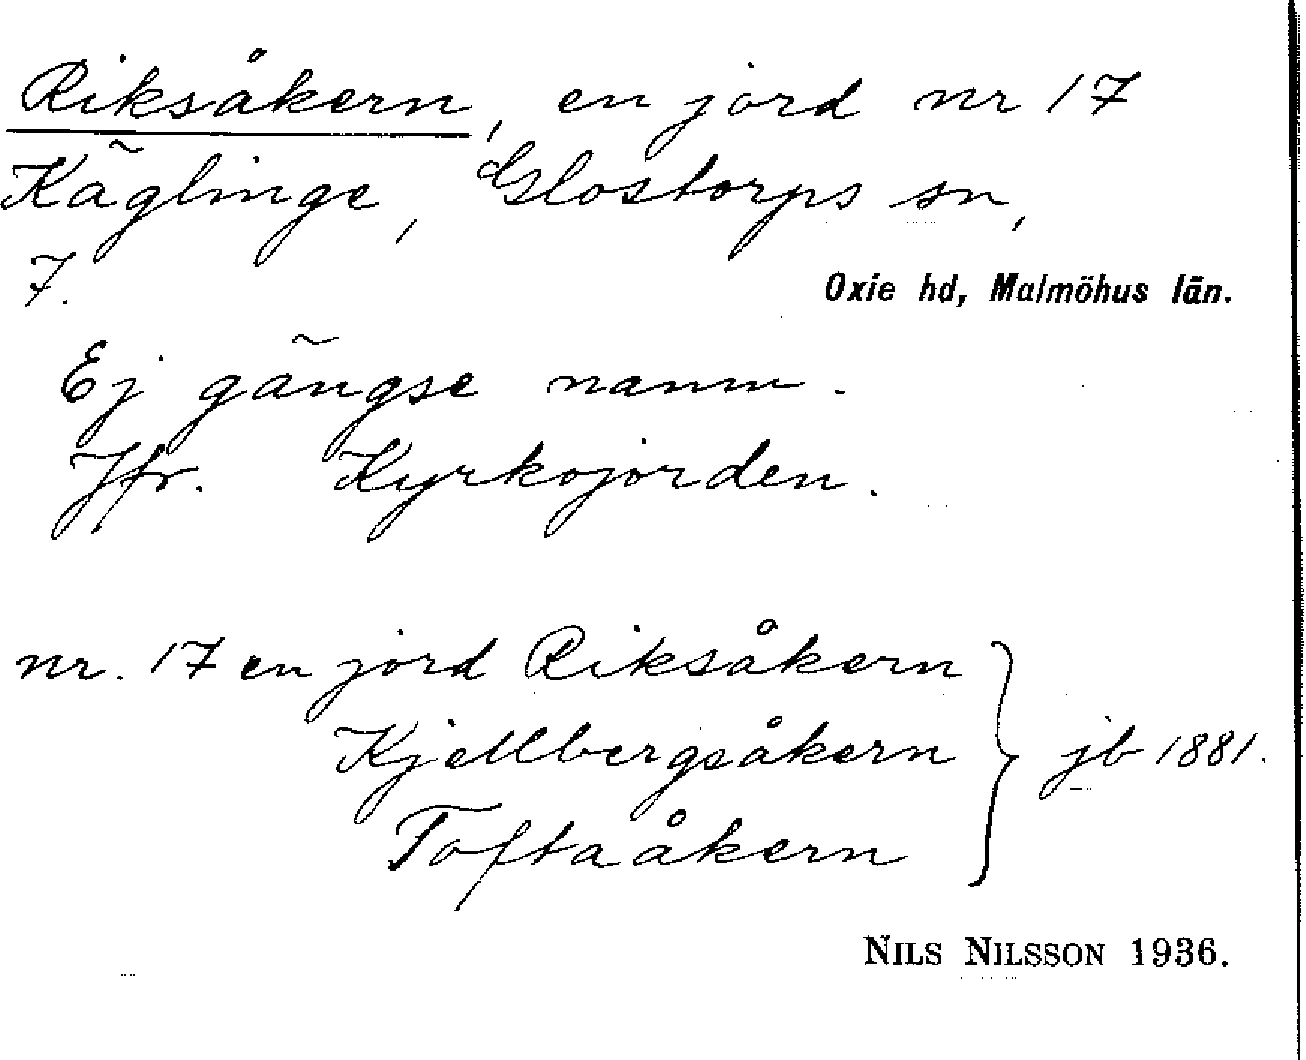 Riksåkern, en jord nr 17
Käglinge, Glostorps sn,
7.
Oxie hd, Malmöhus län.
Ej gängse namn.
Jfr. Kyrkojorden.
nr. 17 en jord Riksåkern
Kjellbergsåkern } jb 1881.
Toftaåkern
NILS NILSSON 1936.